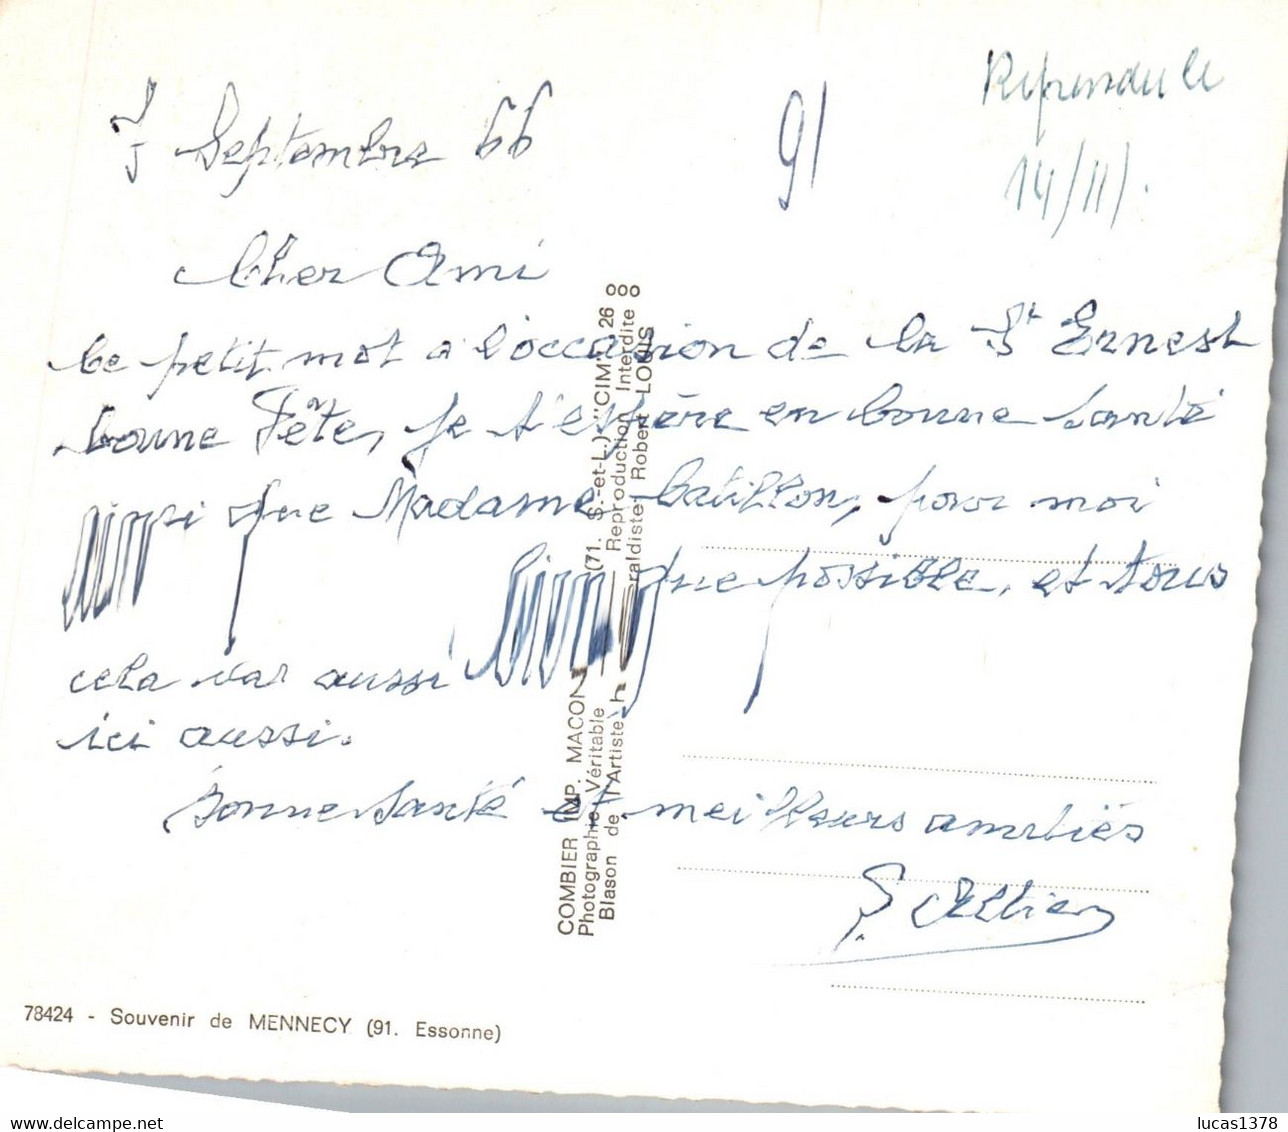 Repondu le
14/11/.
91
7 Septembre 66
Cher Ami
Ce petit mot a l'occasion de la St Ernest
bonne Fête, je t'espère en bonne santé
ainsi que Madame batillon, pour moi
bien que possible, et tous
cela var aussi
ici aussi.
Bonne santé et meilleurs amitiés
COMBIER IMP. MACON (71. S.-et-L.) "CIM" 26
Photographie Véritable Reproduction Interdite
Blason de l'Artiste héraldiste Robert LOUIS
78424 - Souvenir de MENNECY (91. Essonne)
lucas1378